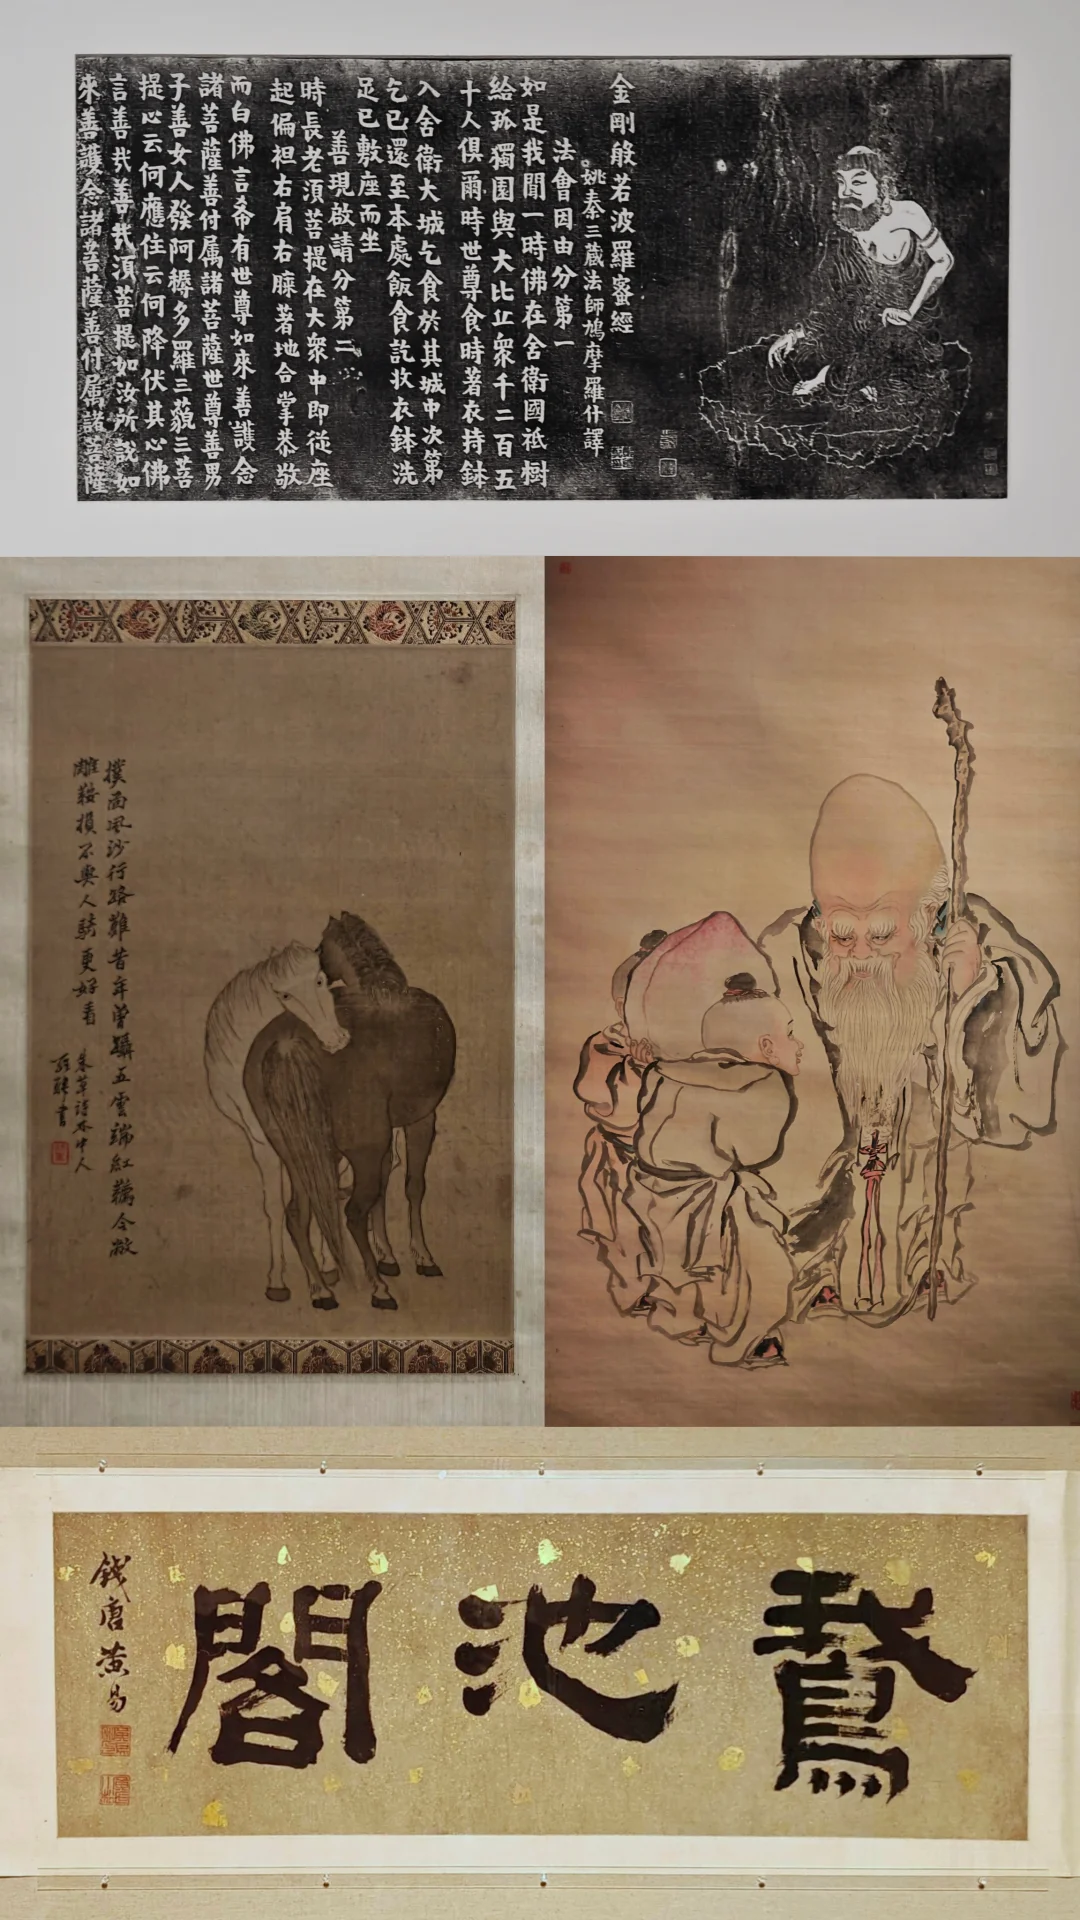 金剛般若波羅蜜經
姚秦三蔵法師鳩摩羅什譯
法會因由分第一
如是我聞一時佛在舍衛國祗樹
給孤獨園與大比丘衆千二百五
十人俱爾時世尊食時著衣持鉢
入舍衛大城乞食於其城中次第
乞已還至本處飯食訖收衣鉢洗
足已敷座而坐
善現啟請分第二
時長老須菩提在大衆中即從座
起偏袒右肩右膝著地合掌恭敬
而白佛言希有世尊如來善護念
諸菩薩善付属諸菩薩世尊善男
子善女人發阿耨多羅三藐三菩
提心云何應住云何降伏其心佛
言善哉善哉須菩提如汝所說如
來善護念諸菩薩善付属諸菩薩
撲面風沙行路難昔年曾躡五雲端紅韉今敝
雕鞍損不與人騎更好看
朱草詩林中人
羅聘書
鵞池閣
錢唐黃易